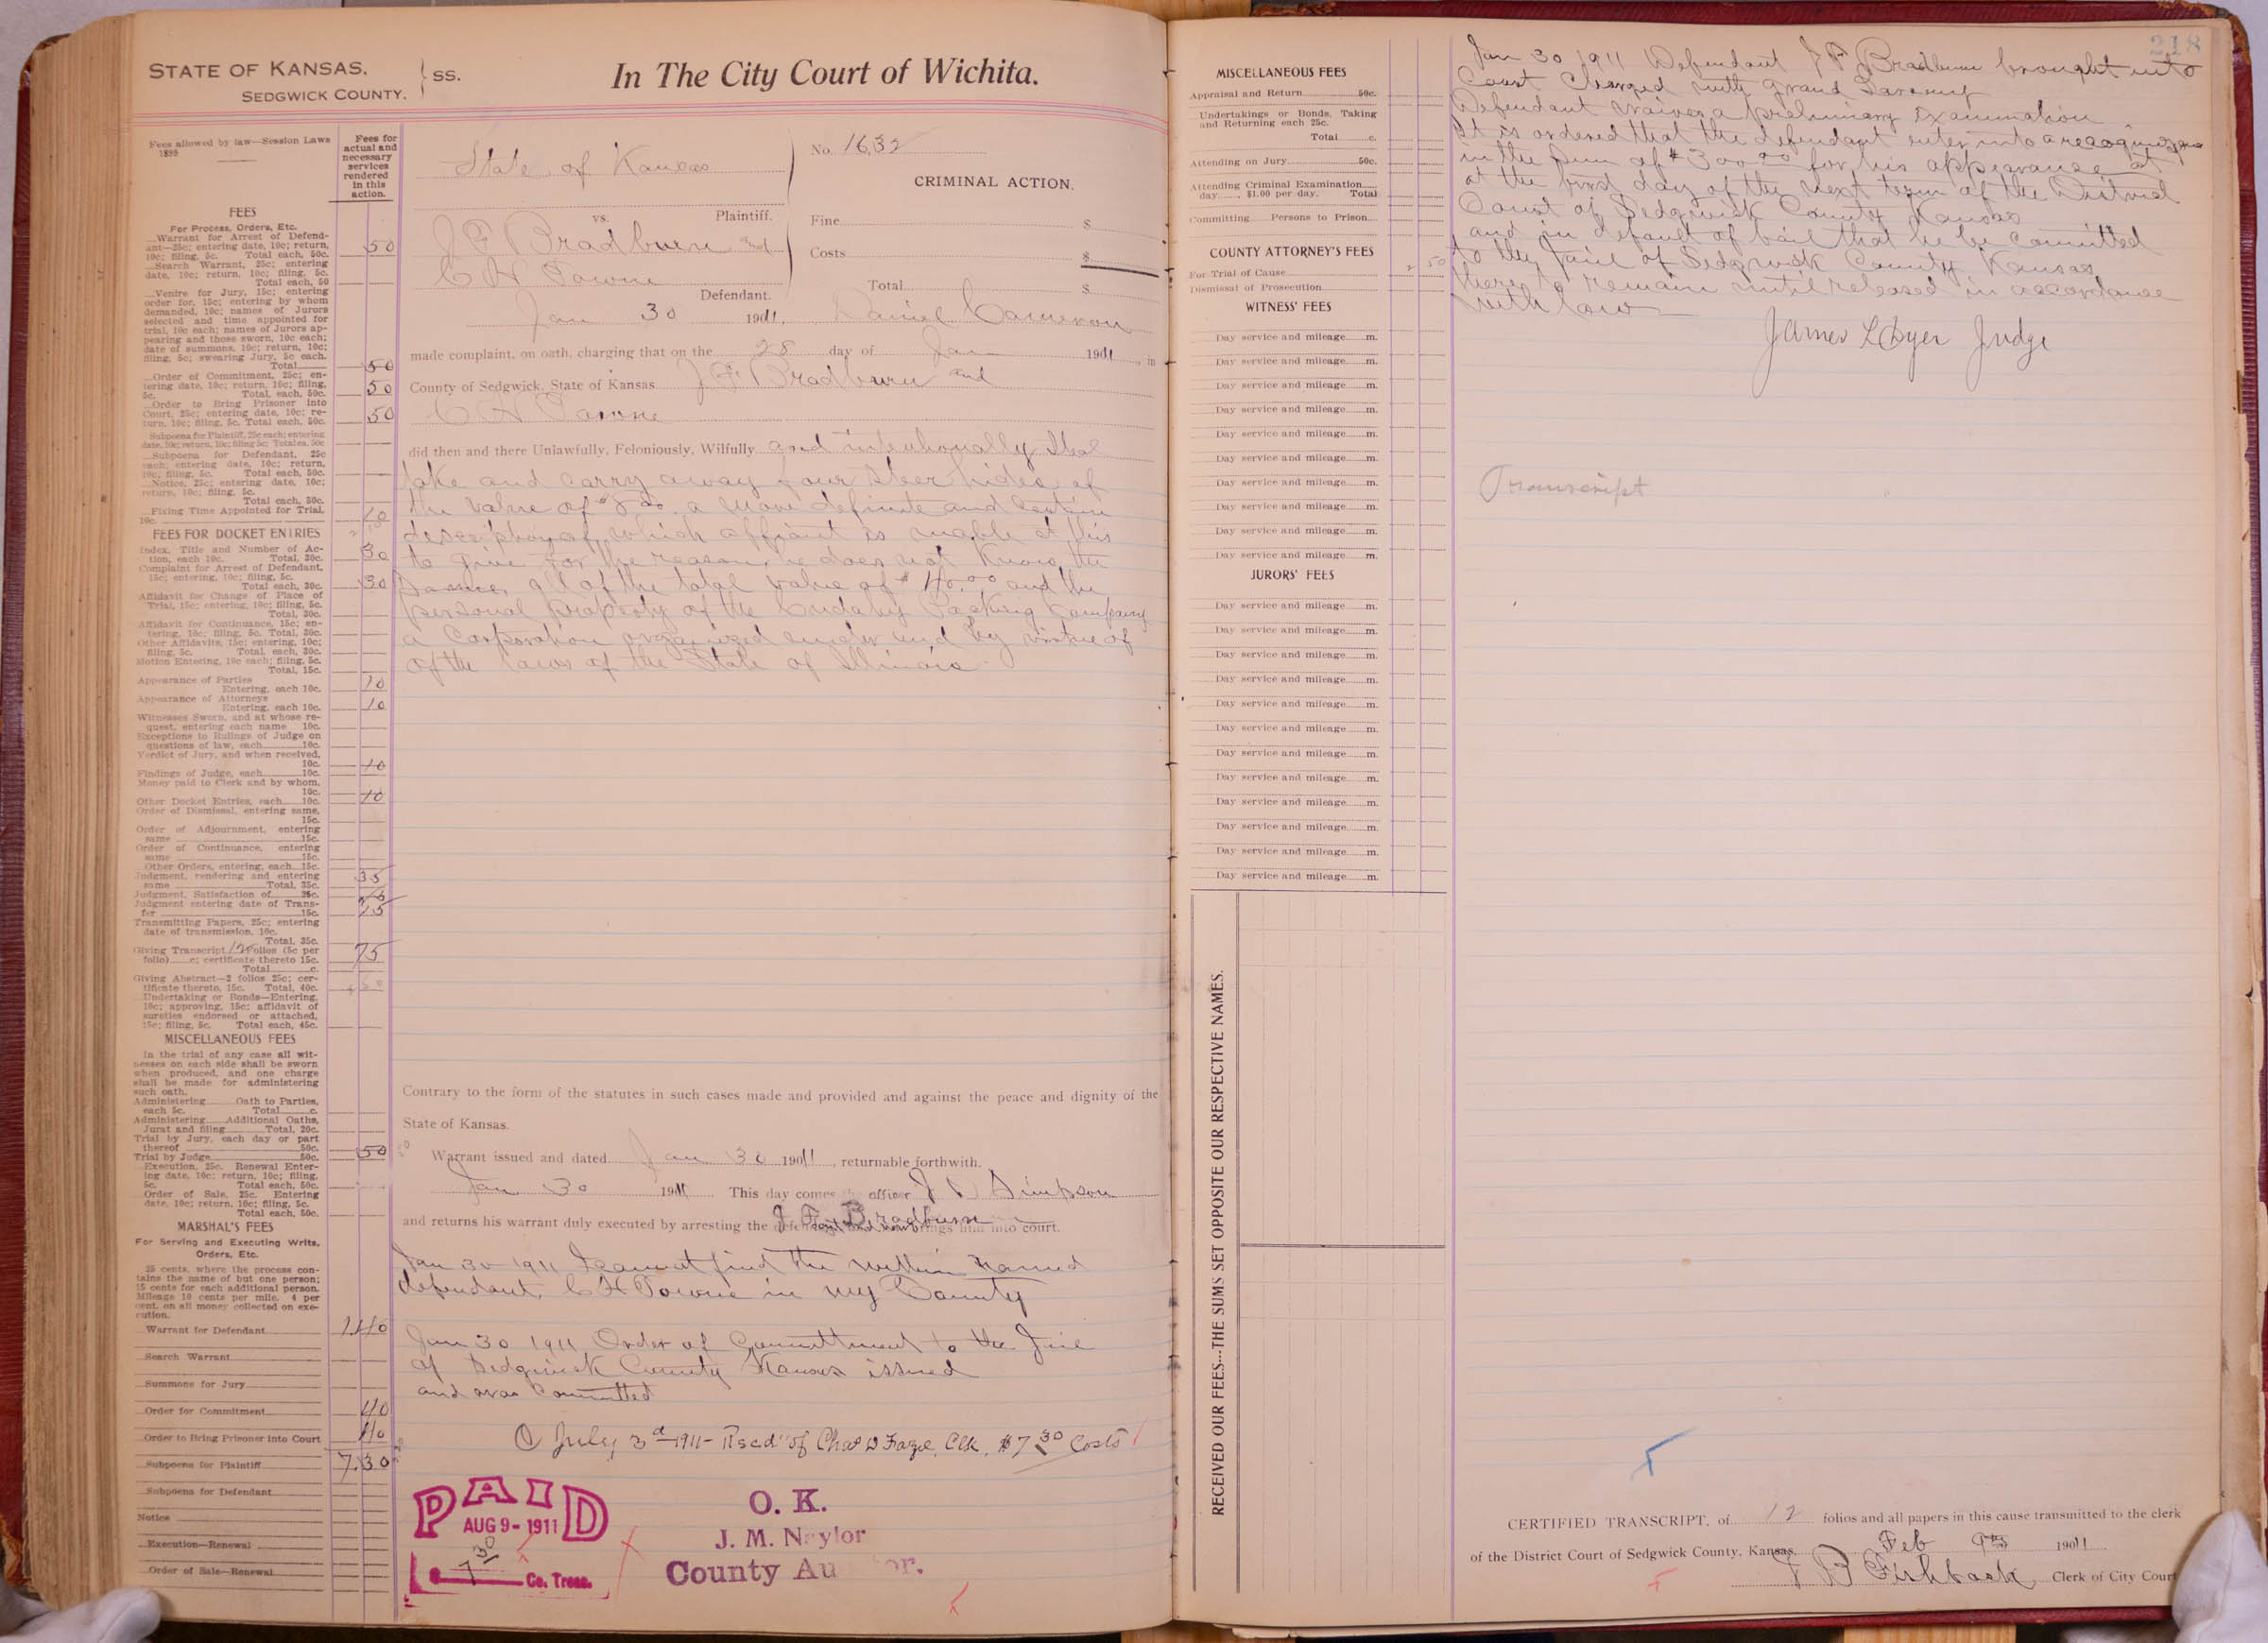 STATE OF KANSAS,
SEDGWICK COUNTY.
SS.
In The City Court of Wichita.
Fees allowed by law—Session Laws
1899
Fees for
actual and
necessary
services
rendered
in this
action.
FEES
For Process, Orders, Etc.
Warrant for Arrest of Defend-
ant—25c; entering date, 10c; return,
10c; filing, 5c. Total each, 50c. 50
Search Warrant, 25c; entering
date, 10c; return, 10c; filing, 5c.
Total each, 50
Venire for Jury, 15c; entering
order for, 15c; entering by whom
demanded, 10c; names of Jurors
selected and time appointed for
trial, 10c each; names of Jurors ap-
pearing and those sworn, 10c each;
date of summons, 10c; return, 10c;
filing, 5c; swearing Jury, 5c each.
Total 50
Order of Commitment, 25c; en-
tering date, 10c; return, 10c; filing,
5c. Total, each, 50c. 50
Order to Bring Prisoner into
Court, 25c; entering date, 10c; re-
turn, 10c; filing, 5c. Total each, 50c. 50
Subpoena for Plaintiff, 25c each; entering
date, 10c; return, 10c; filing 5c; Total ea. 50c
Subpoena for Defendant, 25c
each; entering date, 10c; return,
10c; filing, 5c. Total each, 50c.
Notice, 25c; entering date, 10c;
return, 10c; filing, 5c.
Total each, 50c.
Fixing Time Appointed for Trial,
10c. 10
FEES FOR DOCKET ENTRIES
Index, Title and Number of Ac-
tion, each 10c. Total, 30c. 30
Complaint for Arrest of Defendant,
15c; entering, 10c; filing, 5c.
Total each, 30c. 30
Affidavit for Change of Place of
Trial, 15c; entering, 10c; filing, 5c.
Total, 30c.
Affidavit for Continuance, 15c; en-
tering, 10c; filing, 5c. Total, 30c.
Other Affidavits, 15c; entering, 10c;
filing, 5c. Total, each, 30c.
Motion Entering, 10c each; filing, 5c.
Total, 15c.
Appearance of Parties
Entering, each 10c. 10
Appearance of Attorneys
Entering, each 10c. 10
Witnesses Sworn, and at whose re-
quest, entering each name 10c.
Exceptions to Rulings of Judge on
questions of law, each 10c.
Verdict of Jury, and when received,
10c. 10
Findings of Judge, each 10c.
Money paid to Clerk and by whom,
10c. 10
Other Docket Entries, each 10c.
Order of Dismissal, entering same,
15c.
Order of Adjournment, entering
same 15c.
Order of Continuance, entering
same 15c.
Other Orders, entering, each 15c.
Judgment, rendering and entering
same Total, 35c. 35
Judgment, Satisfaction of 25c.
Judgment entering date of Trans-
fer 15c. 15
Transmitting Papers, 25c; entering
date of transmission, 10c.
Total, 35c.
Giving Transcript 12 Folios (5c per
folio) c; certificate thereto 15c. 75
Total c.
Giving Abstract—2 folios 25c; cer-
tificate thereto, 15c. Total, 40c.
Undertaking or Bonds—Entering,
10c; approving, 15c; affidavit of
sureties endorsed or attached,
15c; filing, 5c. Total each, 45c.
MISCELLANEOUS FEES
In the trial of any case all wit-
nesses on each side shall be sworn
when produced, and one charge
shall be made for administering
such oath.
Administering Oath to Parties,
each 5c. Total c.
Administering Additional Oaths,
Jurat and filing Total, 20c.
Trial by Jury, each day or part
thereof 50c.
Trial by Judge 50c. 50
Execution, 25c. Renewal Enter-
ing date, 10c; return, 10c; filing,
5c. Total each, 50c.
Order of Sale, 25c. Entering
date, 10c; return, 10c; filing, 5c.
Total each, 50c.
MARSHAL'S FEES
For Serving and Executing Writs,
Orders, Etc.
25 cents, where the process con-
tains the name of but one person;
15 cents for each additional person.
Mileage 10 cents per mile. 4 per
cent. on all money collected on exe-
cution.
Warrant for Defendant 1 40
Search Warrant
Summons for Jury
Order for Commitment 40
Order to Bring Prisoner into Court 40
Subpoena for Plaintiff 7.30
Subpoena for Defendant
Notice
Execution—Renewal
Order of Sale—Renewal
State of Kansas
vs. Plaintiff.
J F Bradburn and
C H Towne
Defendant.
No. 1632
CRIMINAL ACTION.
Fine $
Costs $
Total $
Jan 30 1911, Daniel Cameron
made complaint, on oath, charging that on the 28 day of Jan 1911, in
County of Sedgwick, State of Kansas J F Bradburn and
C H Towne
did then and there Unlawfully, Feloniously, Wilfully and intentionally Steal
take and carry away four steer hides of
the value of $ 8 00 a more definite and certain
description of which affiant is unable at this
to give for the reason he does not know the
same, all of the total value of $ 40.00 and the
personal property of the Cudahy Packing Company
a Corporation organized under and by virtue of
of the laws of the State of Illinois
Contrary to the form of the statutes in such cases made and provided and against the peace and dignity of the
State of Kansas.
Warrant issued and dated Jan 30 1911, returnable forthwith.
Jan 30 1911 This day comes officer J Simpson
and returns his warrant duly executed by arresting the J F Bradburn into court.
Jan 30 1911 I cannot find the within named
defendant C H Towne in my County
Jan 30 1911 Order of Committment to the Jail
of Sedgwick County Kansas issued
and was Committed
July 3d 1911 - Recd of Chas D Fazel, Clk, $7 30 Costs
PAID
AUG 9 - 1911
7 30
Co. Treas.
O. K.
J. M. Naylor
County Au or.
218
MISCELLANEOUS FEES
Appraisal and Return 50c.
Undertakings or Bonds, Taking
and Returning each 25c.
Total c.
Attending on Jury 50c.
Attending Criminal Examination
day , $1.00 per day. Total
Committing Persons to Prison
COUNTY ATTORNEY'S FEES
For Trial of Cause 2 50
Dismissal of Prosecution
WITNESS' FEES
Day service and mileage m.
Day service and mileage m.
Day service and mileage m.
Day service and mileage m.
Day service and mileage m.
Day service and mileage m.
Day service and mileage m.
Day service and mileage m.
Day service and mileage m.
Day service and mileage m.
JURORS' FEES
Day service and mileage m.
Day service and mileage m.
Day service and mileage m.
Day service and mileage m.
Day service and mileage m.
Day service and mileage m.
Day service and mileage m.
Day service and mileage m.
Day service and mileage m.
Day service and mileage m.
Day service and mileage m.
Day service and mileage m.
RECEIVED OUR FEES...THE SUMS SET OPPOSITE OUR RESPECTIVE NAMES.
Jan 30 1911 Defendant J F Bradburn brought into
Court Charged with grand Larceny
Defendant waives a preliminary Examination
It is ordered that the defendant enter into a recognizance
in the sum of $300.00 for his appearance at
at the first day of the next term of the District
Court of Sedgwick County Kansas
and in default of bail that he be committed
to the Jail of Sedgwick County Kansas
there to remain until released in accordance
with law
James L Dyer Judge
Transcript
CERTIFIED TRANSCRIPT, of 12 folios and all papers in this cause transmitted to the clerk
of the District Court of Sedgwick County, Kansas, Feb 9th 1911
J B Fishback Clerk of City Court